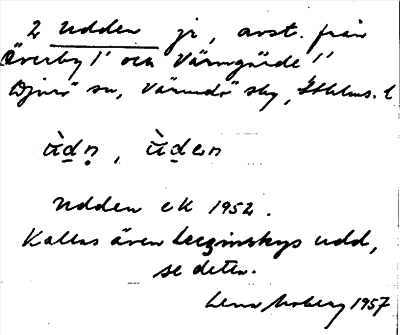 2 Udden jr, avst. från
Överby 1¹ och Värmgärde 1¹
Djurö sn, Värmdö sky, Sthlms. l
ùdṇ, ùden
Udden ek 1952.
Kallas även Leczinskys udd,
se detta.
Lena Moberg 1957